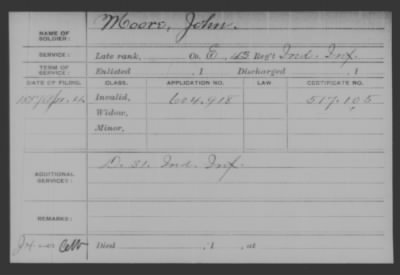 NAME OF SOLDIER: Moore, John.
SERVICE: Late rank, Co. E, 43 Reg't Ind. Inf.
TERM OF SERVICE: Enlisted , 1 Discharged , 1
DATE OF FILING. CLASS. APPLICATION NO. LAW CERTIFICATE NO.
Invalid, 604.918 517.105
Widow,
Minor,
ADDITIONAL SERVICES: D. 31. Ind. Inf.
REMARKS:
Died , 1 , at